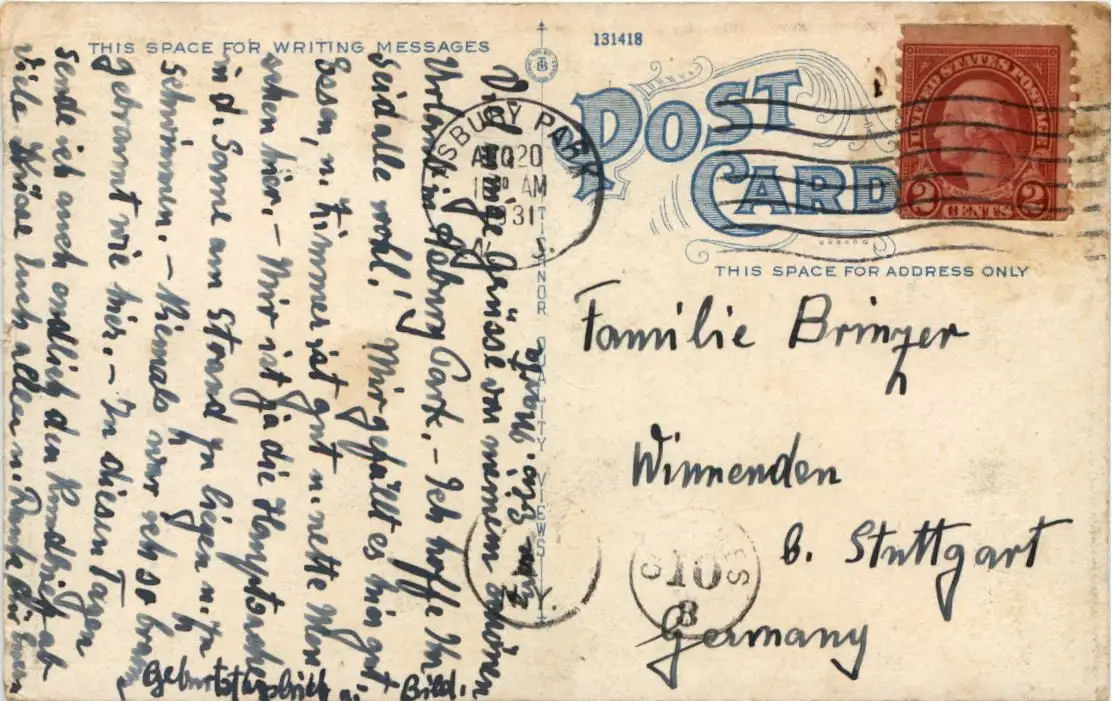 THIS SPACE FOR WRITING MESSAGES
131418
POST CARD
UNITED STATES POSTAGE
2 CENTS 2
ASBURY PARK
AUG 20
AM
1931
THIS SPACE FOR ADDRESS ONLY
TICHNOR QUALITY VIEWS
Familie Brinzer
Winnenden
b. Stuttgart
Germany
10
8
Viele Grüsse von meinem schönen
Urlaub in Asbury Park. – Ich hoffe Ihr
seid alle wohl! Mir gefällt es hier gut,
Essen, u. Zimmer ist gut u. nette Men
schen hier. – Mir ist ja die Hauptsache
in d. Sonne am Strand zu liegen u. zu
schwimmen. – Niemals war ich so braun
gebrannt wie hier. – In diesen Tagen
sende ich auch endlich den Rundbrief ab
Viele Küsse Euch allen u.
Bild.